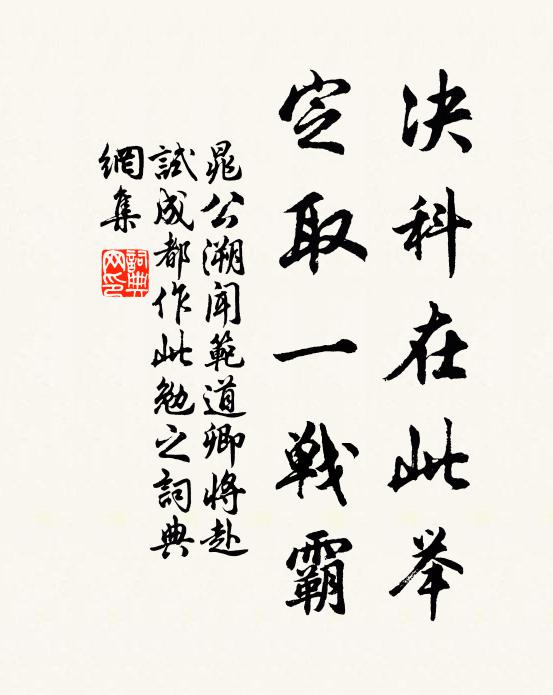 决科在此举
定取一戰霸
晁公溯闻範道卿將赴
試成都作此勉之詞典
網集
詞典
网印